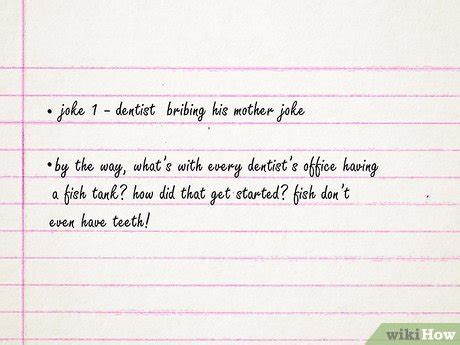 • joke 1 - dentist bribing his mother joke
• by the way, what's with every dentist's office having
a fish tank? how did that get started? fish don't
even have teeth!
wikiHow